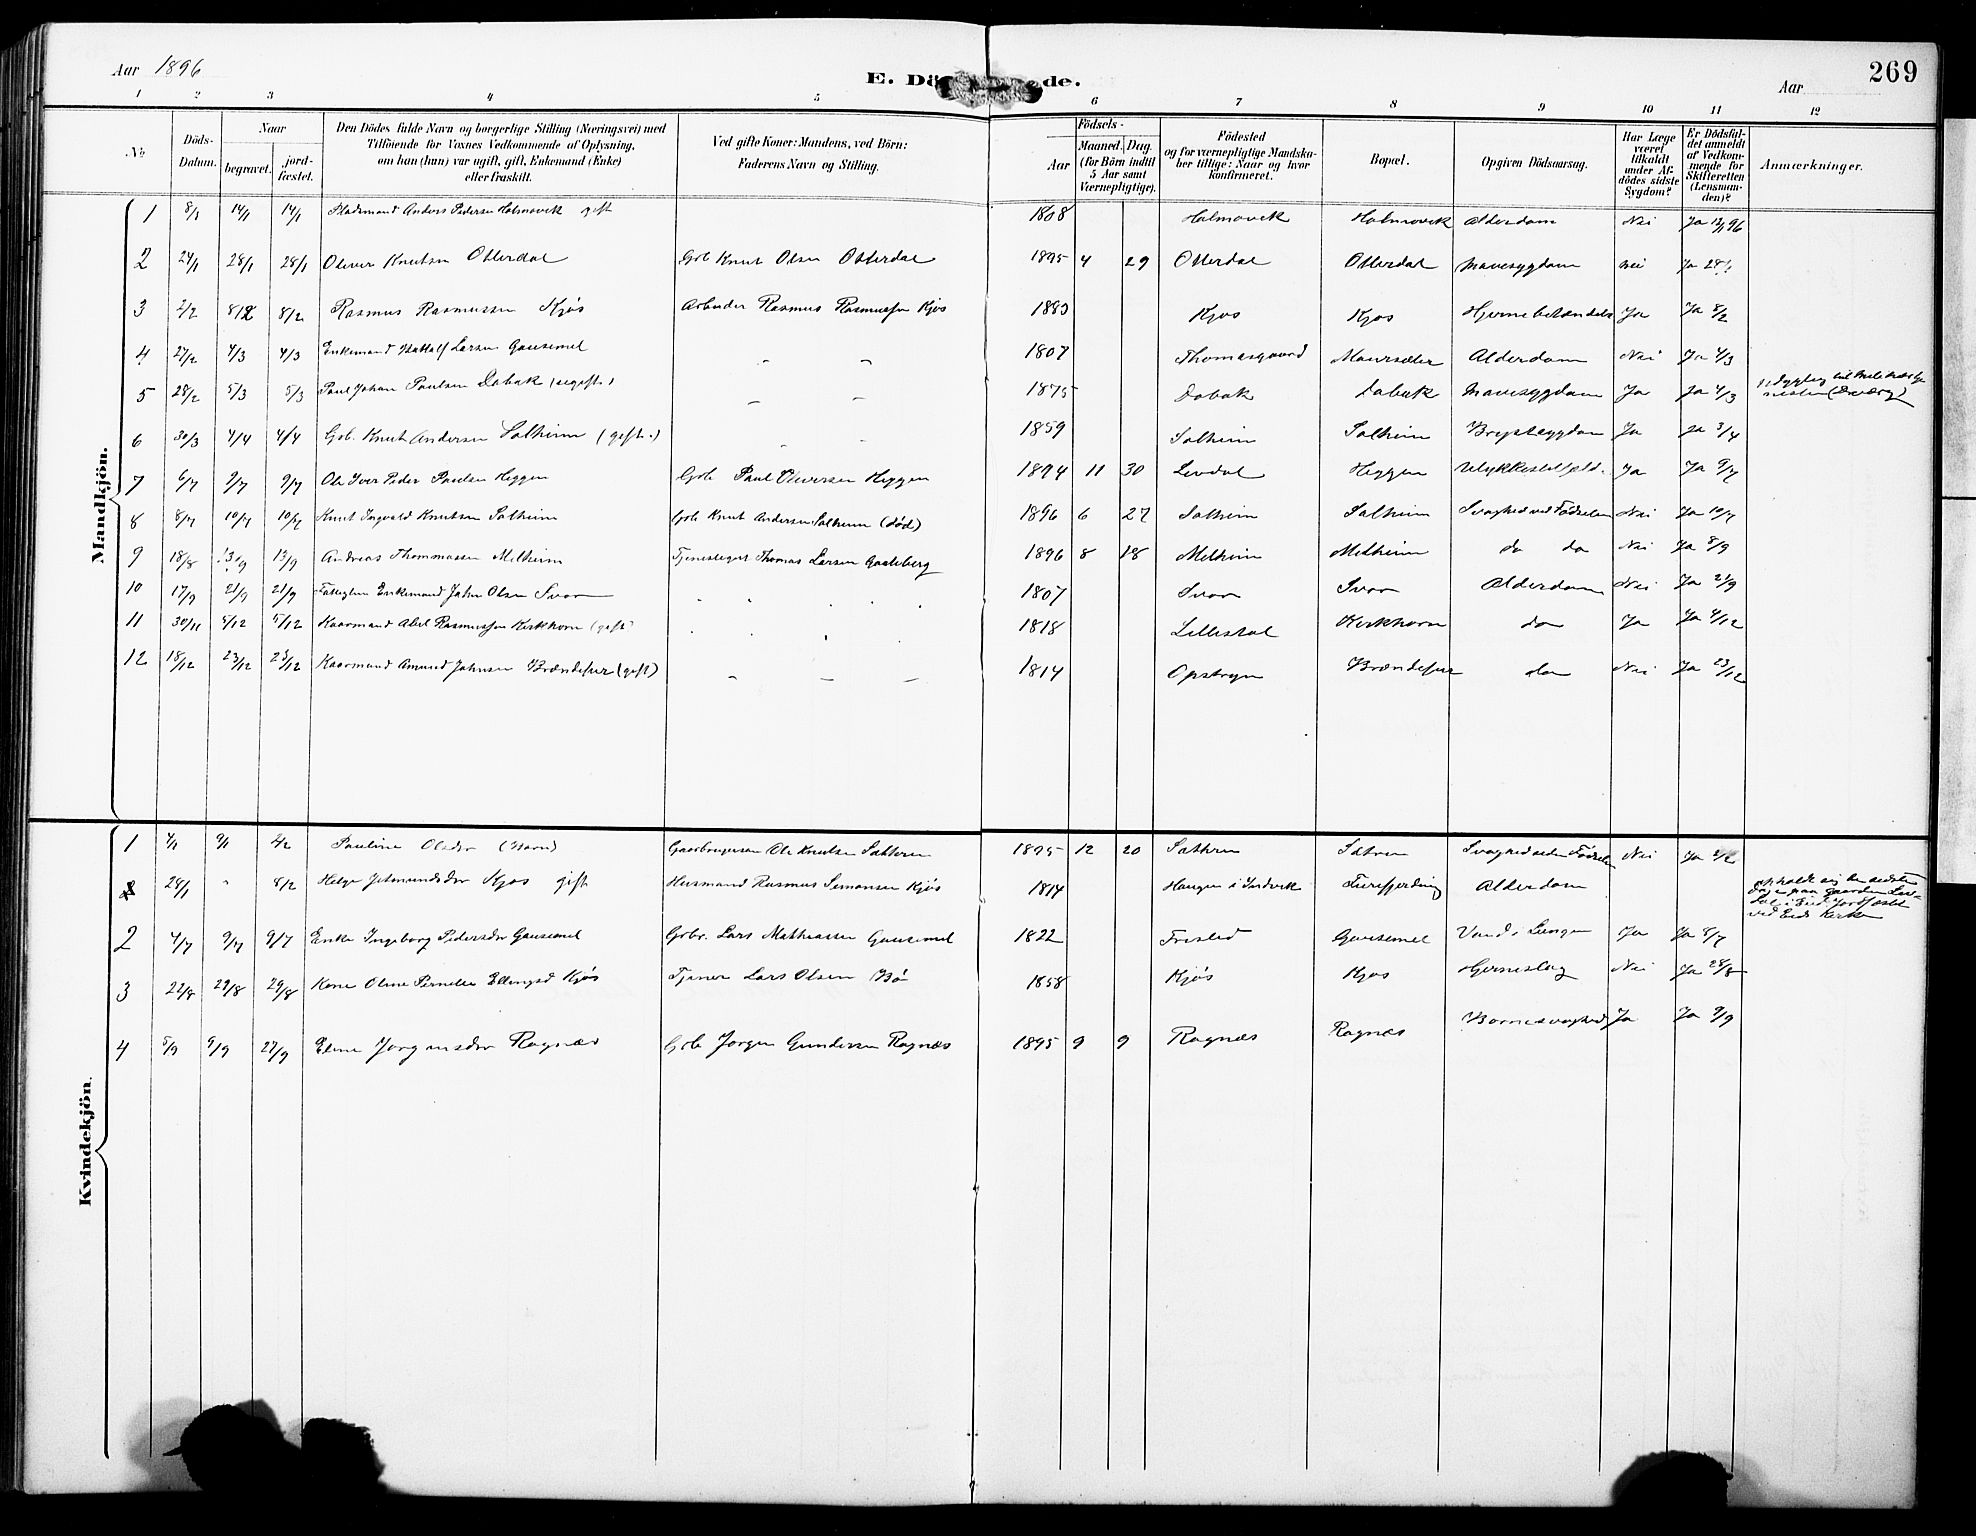 Aar 1896
E. Dö de.
Aar
269
1 2 3 4 5 6 7 8 9 10 11 12
No
Döds-Datum.
Naar
begravet.
jord-fæstet.
Den Dödes fulde Navn og borgerlige Stilling (Næringsvei) med
Tilföiende for Voxnes Vedkommende af Oplysning,
om han (hun) var ugift, gift, Enkemand (Enke)
eller fraskilt.
Ved gifte Koner: Mandens, ved Börn:
Faderens Navn og Stilling.
Födsels-
Aar
Maaned. Dag.
(for Börn indtil
5 Aar samt
Værnepligtige).
Födested
og for værnepligtige Mandska-
ber tillige: Naar og hvor
konfirmeret.
Bopæl.
Opgiven Dödsaarsag.
Har Læge
været
tilkaldt
under Af-
dödes sidste
Sygdom?
Er Dödsfal-
det anmeldt
af Vedkom-
mende for
Skifteretten
(Lensman-
den)?
Anmærkninger.
Mandkjön.
1 8/1 14/1 14/1 Pladsmand Anders Pedersen Holmøvik gift 1808 Holmøvik Holmøvik Alderdom Nei Ja 12/1 96
2 24/1 28/1 28/1 Oliver Knutsen Otterdal Gbr. Knut Olsen Otterdal 1895 4 29 Otterdal Otterdal Mavesygdom Nei Ja 28/1
3 2/2 8/2 8/2 Rasmus Rasmussen Kjøs Arbeider Rasmus Rasmussen Kjøs 1883 Kjøs Kjøs Hjernebetændelse Ja Ja 8/2
4 27/2 4/3 4/3 Enkemand Larsen Gausemel 1807 Thomasgaard Maurseter Alderdom Nei Ja 4/3
5 28/2 5/3 5/3 Paul Johan Paulsen Dobak (ugift) 1875 Dobak Dobak Mavesygdom Ja Ja 4/3
6 30/3 4/4 4/4 Gbr. Knut Andersen Solheim (gift) 1859 Solheim Solheim Brystsygdom Ja Ja 3/4
7 6/7 9/7 9/7 Ole Iver Peder Paulsen Heggen Gbr. Paul Oliversen Heggen 1894 11 30 Levdal Heggen Ulykkestilfæld. Ja Ja 9/7
8 8/7 10/7 10/7 Knut Ingvald Knutsen Solheim Gbr. Knut Andersen Solheim (død) 1896 6 27 Solheim Solheim Svaghed ved Fødselen Nei Ja 10/7
9 18/8 13/9 13/9 Andreas Thommassen Melheim Thomas Larsen 1896 8 18 Melheim Melheim do do Nei Ja 8/9
10 17/9 21/9 21/9 Enkemand John Olsen Svor 1807 Svor Svor Alderdom Nei Ja 21/9
11 30/11 5/12 5/12 Kaarmand Abel Rasmussen Kirkhorn (gift) 1818 Lillestol Kirkhorn do Ja Ja 4/12
12 18/12 23/12 23/12 Kaarmand Amund Johnsen Brændefur (gift) 1814 Opstryn Brændefur do Nei Ja 23/12
Kvindekjön.
1 4/1 9/1 2/2 Pauline Olsdtr (Barn) Gaardbruger Ole Knutsen Sætren 1895 12 20 Sætren Sætren Svaghed siden Fødselen Nei Ja 2/2
28/1 8/2 Helge Jetmundsdtr Kjøs gift Husmand Rasmus Simonsen Kjøs 1814 Haugen i Indvik Alderdom
opholdt sig de sidste
dage paa gaarden Lev-
dal i Eid. Jordfæstet
ved Eids Kirke
2 4/7 9/7 9/7 Enke Ingeborg Pedersdtr Gausemel Gbr. Lars Mathiassen Gausemel 1822 Gausemel Vand i Lungen Ja Ja 8/7
3 22/8 29/8 29/8 Kone Oline Pernelie Ellingsd Kjøs Tjener Lars Olsen Bø 1858 Kjøs Kjøs Hjerneslag Nei Ja 28/8
4 5/9 9/9 27/9 Eline Jorginsdtr Rognæs Gbr. Jorgen Gundersen Rognes 1895 9 9 Rognæs Rognæs Barnesvaghed Ja Ja 9/9